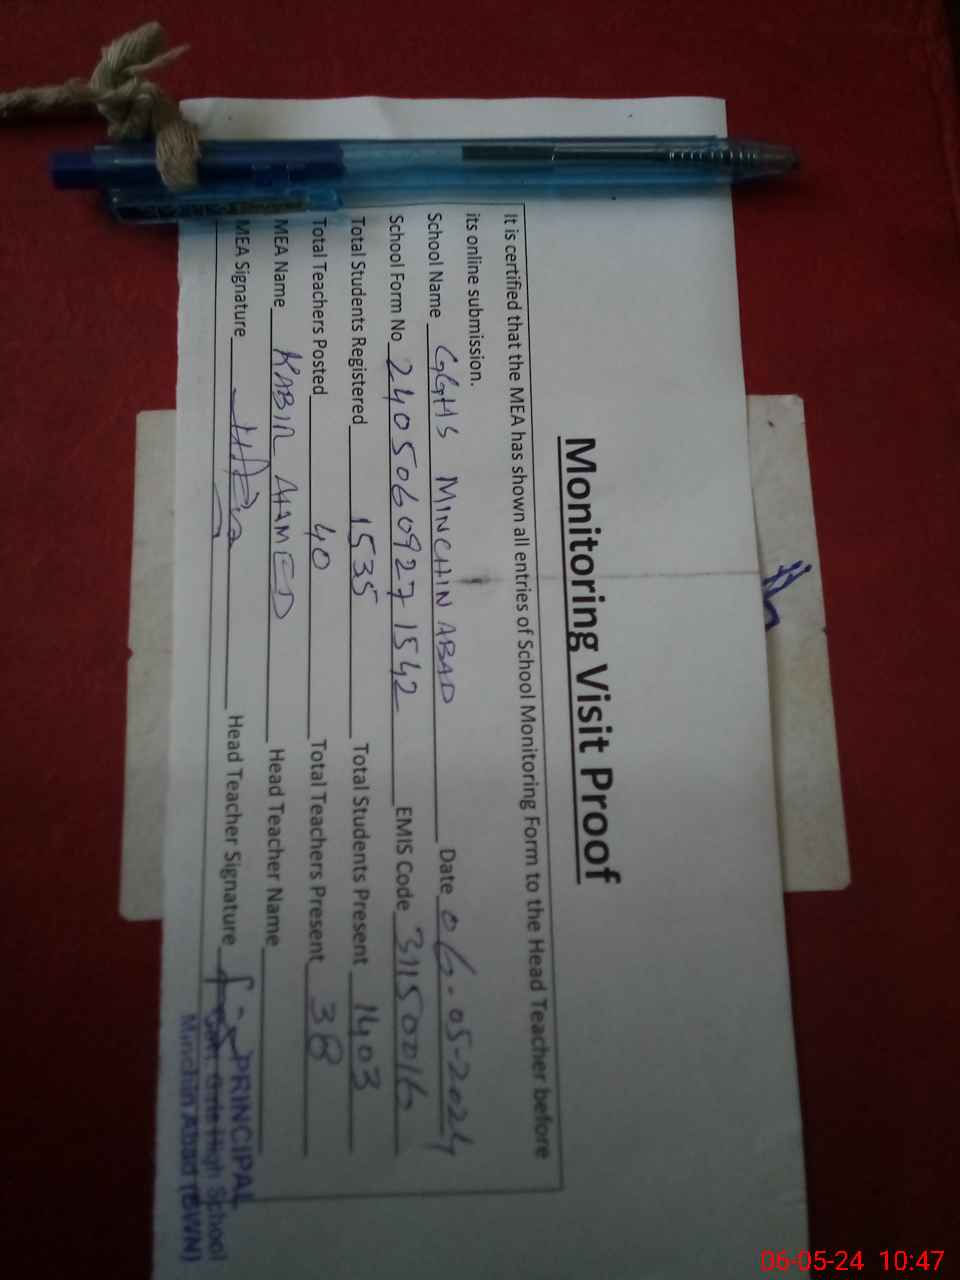 Monitoring Visit Proof
It is certified that the MEA has shown all entries of School Monitoring Form to the Head Teacher before
its online submission.
School Name GGHS MINCHIN ABAD Date 06-05-2024
School Form No 2405060927 1542 EMIS Code 31150016
Total Students Registered 1535 Total Students Present 1403
Total Teachers Posted 40 Total Teachers Present 38
MEA Name KABIR AHMED Head Teacher Name
MEA Signature Head Teacher Signature
PRINCIPAL
Govt. Girls High School
Minchin Abad (BWN)
06-05-24 10:47